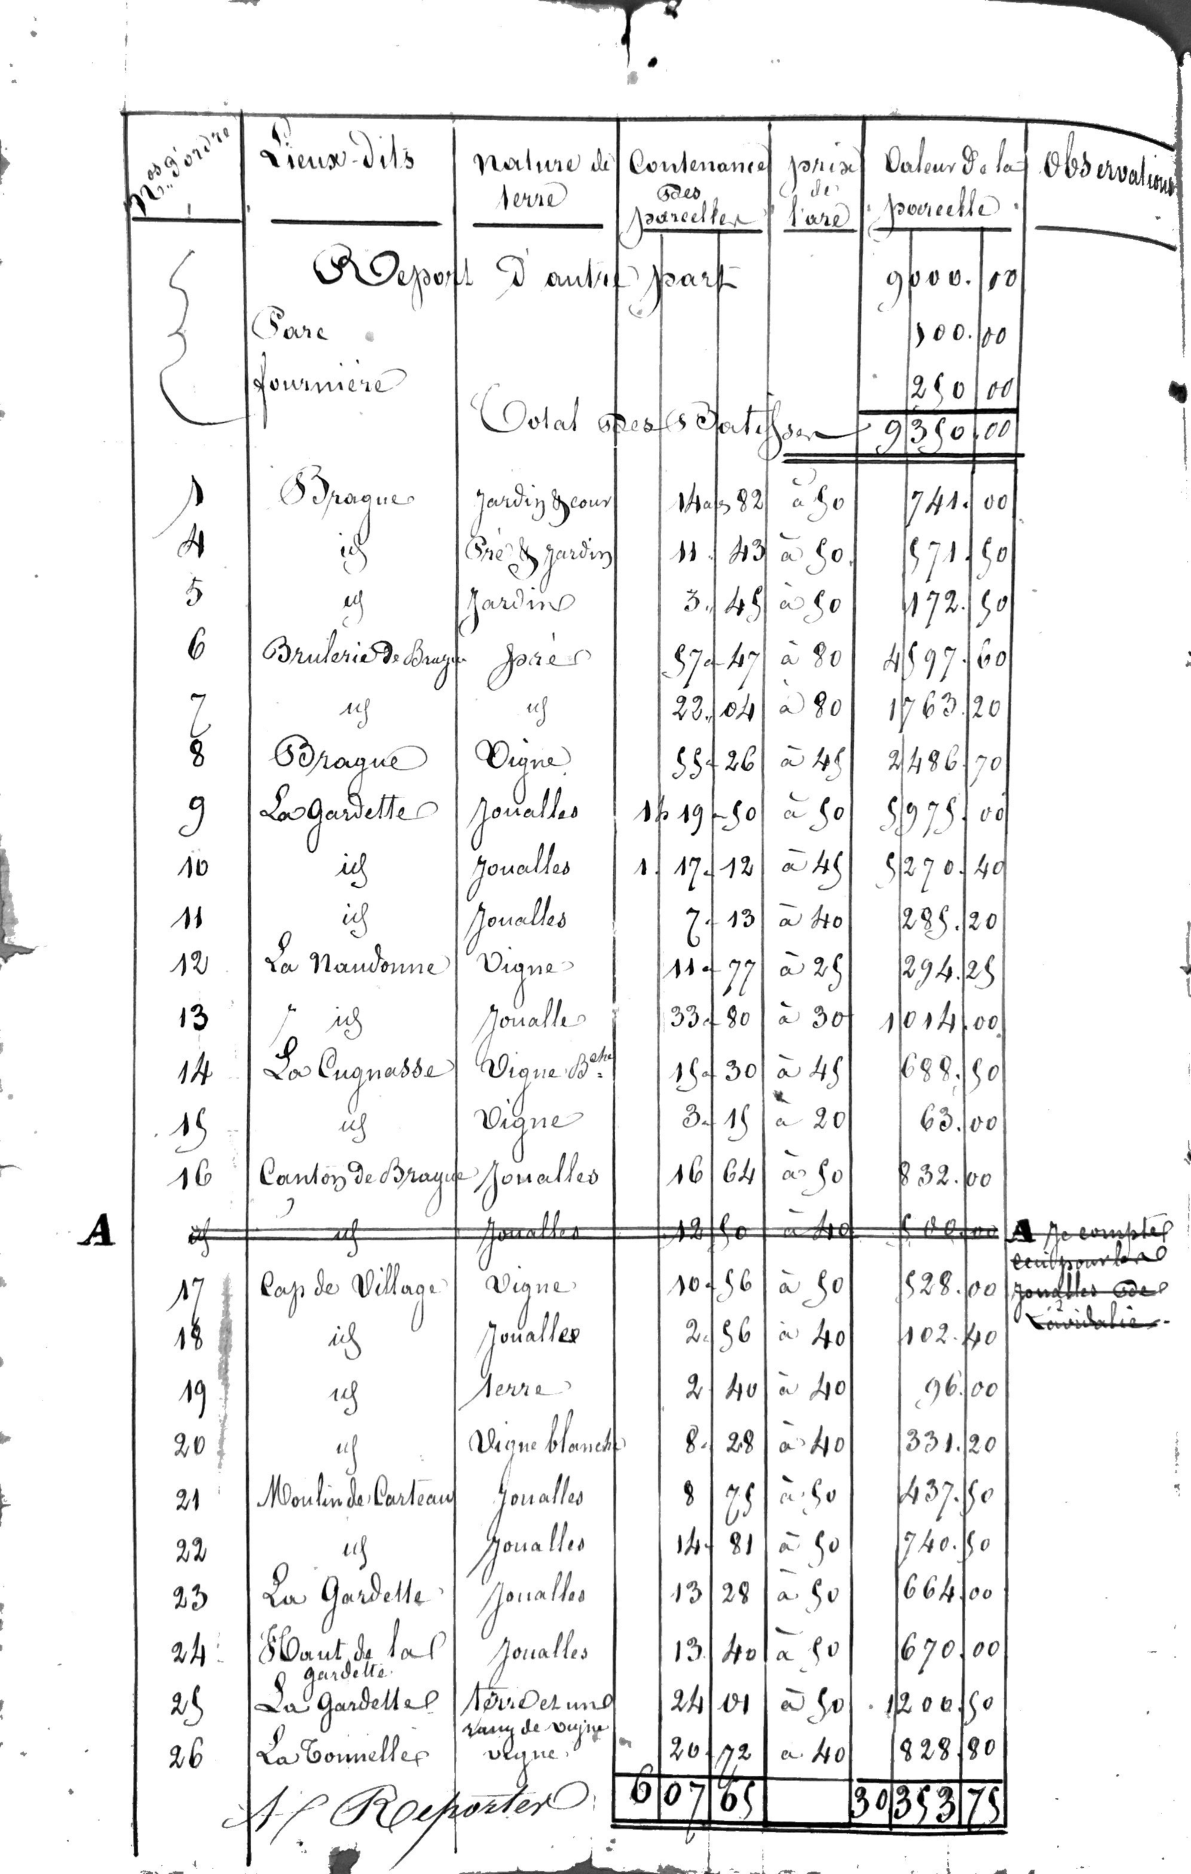 Nos d'ordre Lieux-dits Nature de terre Contenance des parcelles prix de l'are Valeur de la parcelle Observations
Report d'autre part 9000. 00
Parc 100. 00
fournière 250 00
Total des Batisses 9350.00
1 Brague Jardin & cour 14a 82 à 50 741. 00
4 id Pré & Jardin 11. 43 à 50. 571. 50
5 id Jardin 3. 45 à 50 172. 50
6 Brulerie de Brague prés 57 47 à 80 4597. 60
7 id id 22. 04 à 80 1763. 20
8 Brague Vigne 55 26 à 45 2486. 70
9 La Gardette Joualles 1h 19 50 à 50 5975. 00
10 id Joualles 1. 17. 12 à 45 5270. 40
11 id Joualles 7. 13 à 40 285. 20
12 La Naudonne Vigne 11 77 à 25 294. 25
13 id Joualle 33 80 à 30 1014. 00
14 La Cugnasse Vigne Bche 15 30 à 45 688. 50
15 id Vigne 3. 15 à 20 63. 00
16 Canton de Brague Joualles 16 64 à 50 832. 00
A id id Joualles 12 50 à 40 500. 00 A Je compte
ceci pour les
17 Cap de Village Vigne 10 56 à 50 528. 00 Joualles de
18 id Joualles 2. 56 à 40 102. 40
19 id terre 2 40 à 40 96. 00
20 id Vigne blanche 8. 28 à 40 331. 20
21 Moulin de Carteau Joualles 8 75 à 50 437. 50
22 id Joualles 14 81 à 50 740. 50
23 La Gardette Joualles 13 28 à 50 664. 00
24 Haut de la gardette Joualles 13. 40 à 50 670. 00
25 La Gardette terre et un rang de vigne 24 01 à 50 1200. 50
26 La Tonnelle vigne 20 72 a 40 828. 80
A Reporter 6 07 65 30353 75